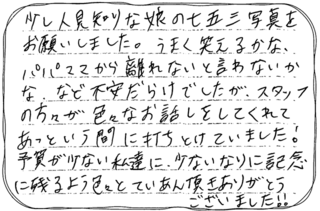 少し人見知りな娘の七五三写真を
お願いしました。うまく笑えるかな、
パパママから離れないと言わないか
な、など不安だらけでしたが、スタッフ
の方々が色々なお話しをしてくれて
あっという間に打ちとけていました!
予算が少ない私達に、少ないなりに記念
に残るよう色々とていあん頂きありがとう
ございました!!